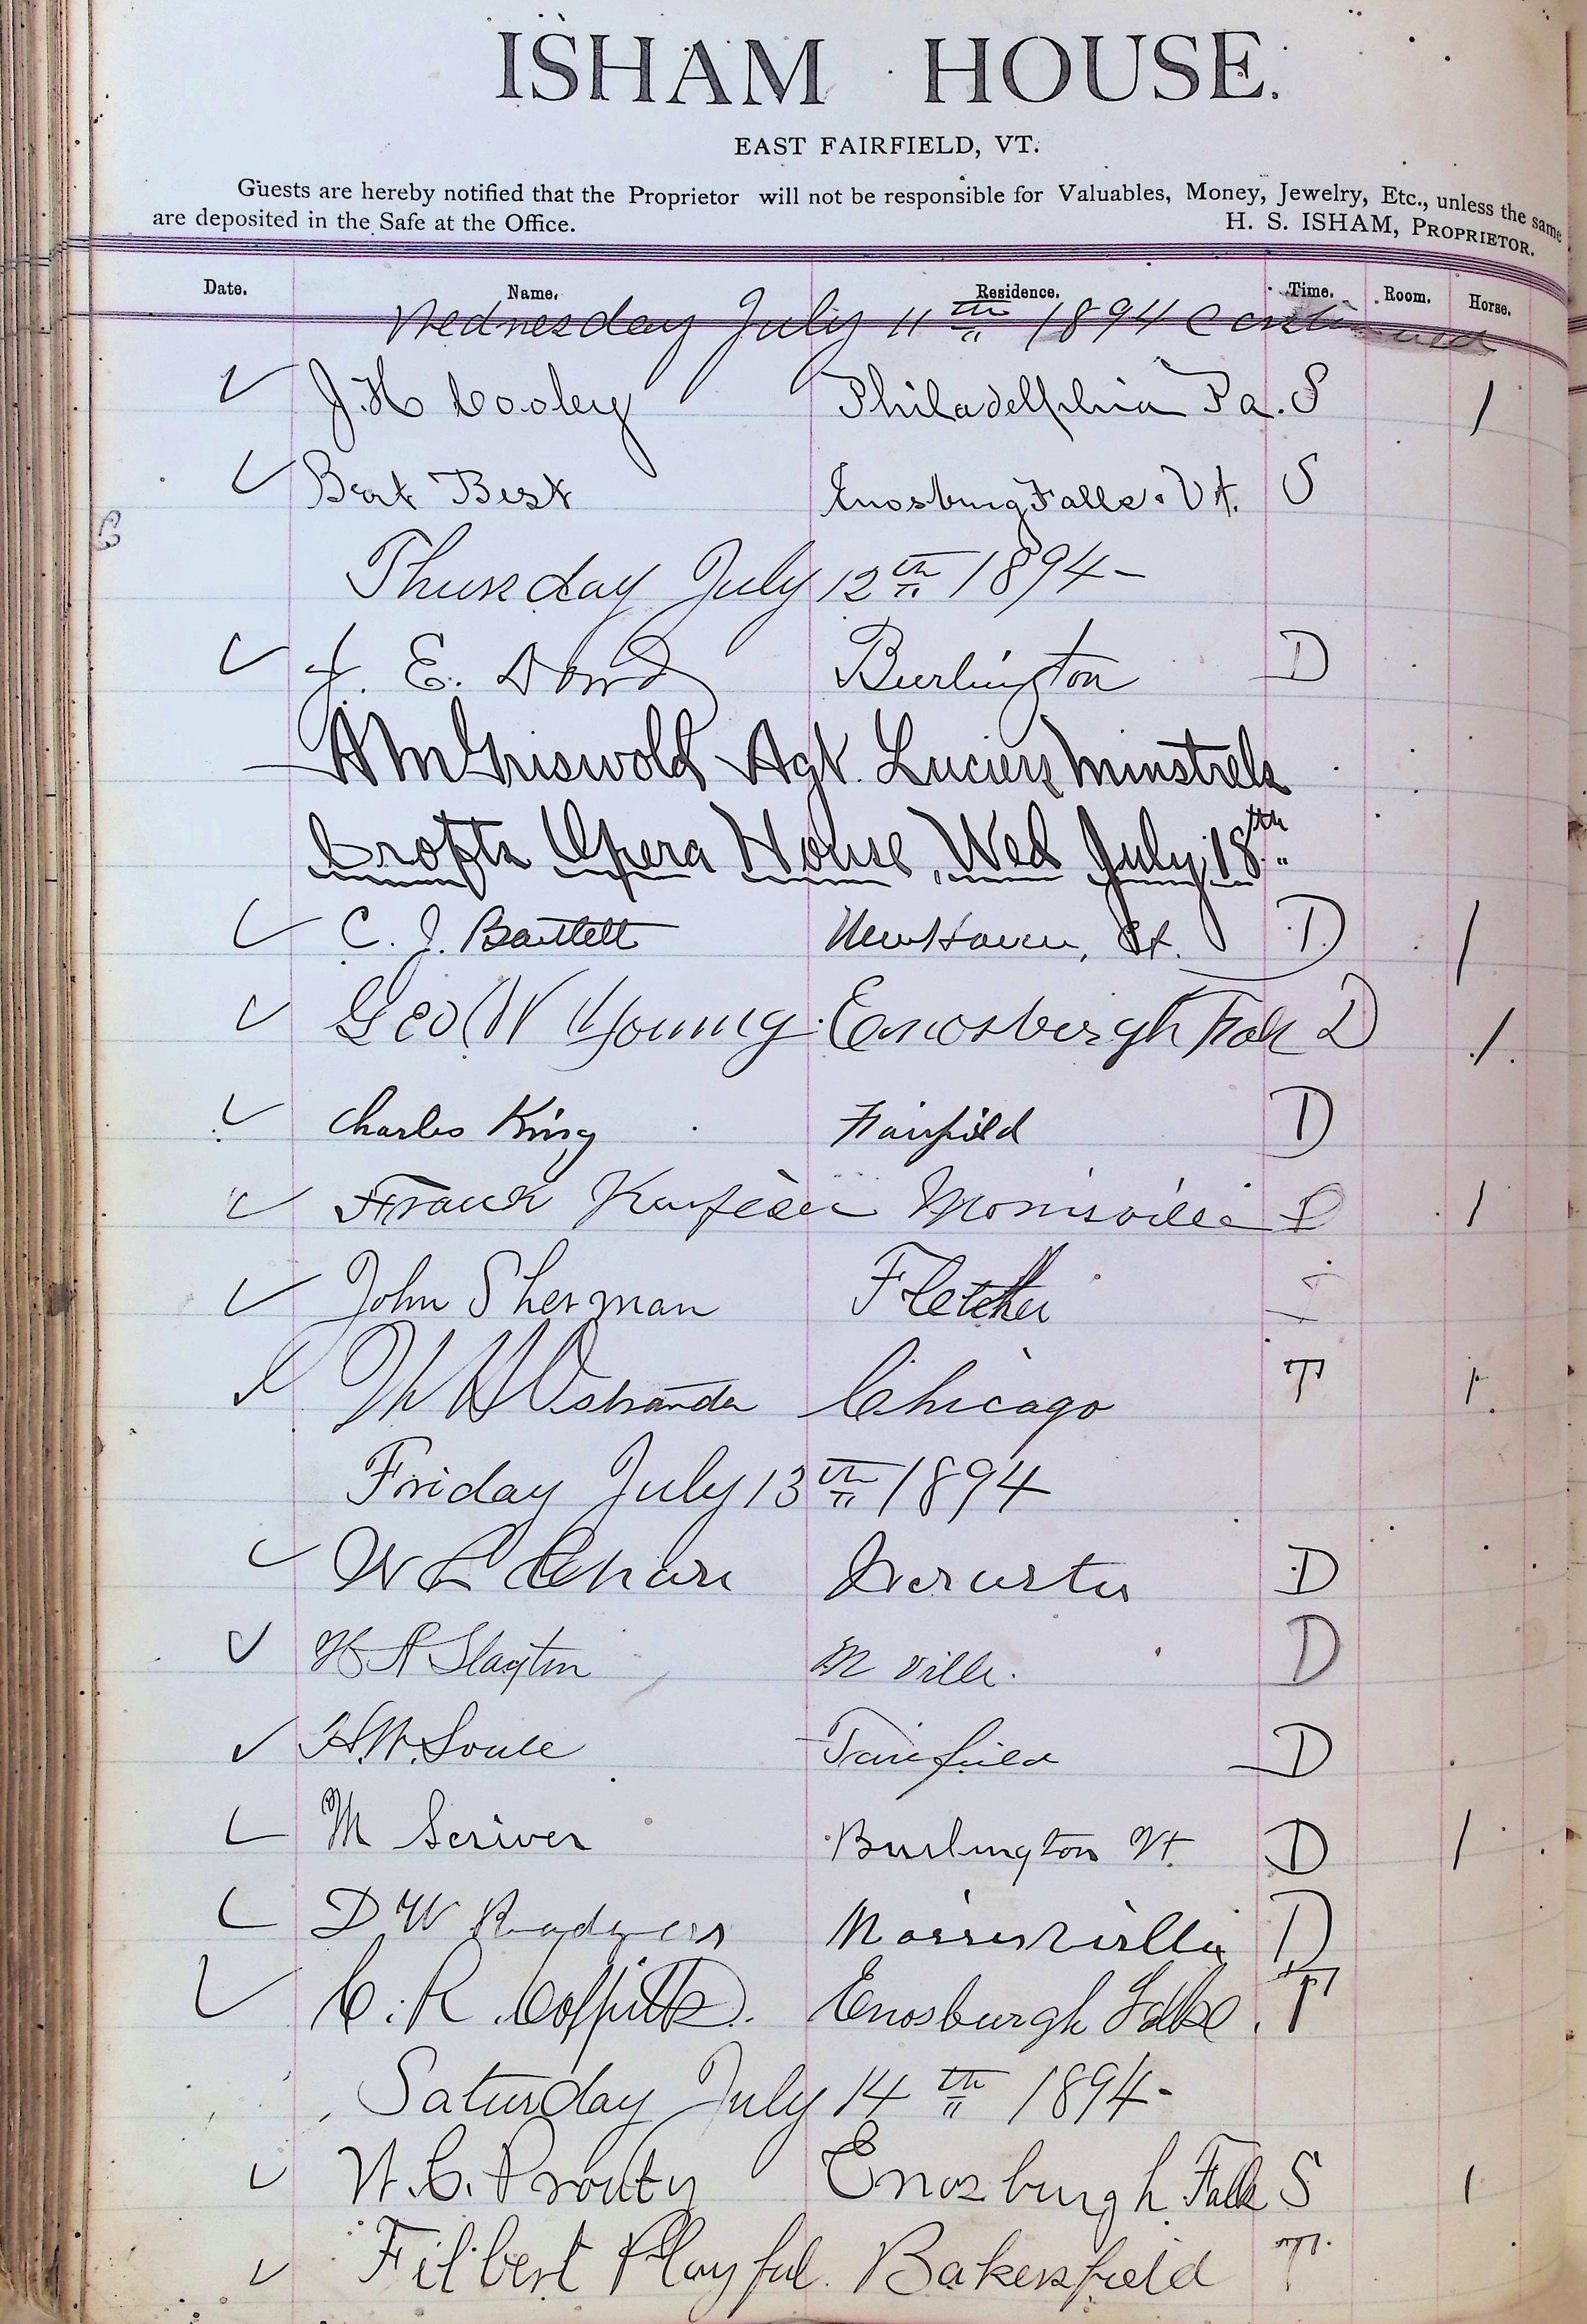 ISHAM HOUSE.
EAST FAIRFIELD, VT.
Guests are hereby notified that the Proprietor will not be responsible for Valuables, Money, Jewelry, Etc., unless the same
are deposited in the Safe at the Office. H. S. ISHAM, PROPRIETOR.
Date. Name. Residence. Time. Room. Horse.
Wednesday July 11th 1894 Continued
J. H Cooley Philadelphia Pa. S 1
Bert Best Enosburg Falls. Vt. S
Thursday July 12th 1894-
J. E. Dowd Burlington D
A M Griswold Agt. Luciers Minstrels
Crofts Opera House, Wed July 18th
C. J. Bartlett New Haven, Ct. D 1
Geo W Young Enosburgh Fals D 1
Charles King Fairfield D
Frank Morrisville D 1
John Sherman Fletcher
Chicago T 1
Friday July 13th 1894
W D
H A Slayton M ville. D
H. W. Soule Fairfield D
M Scriver Burlington Vt. D 1
D W Morrisville D
C. R. Enosburgh Falls. T
Saturday July 14th 1894-
W. C. Prouty Enosburgh Falls S 1
Filbert Playful. Bakersfield T